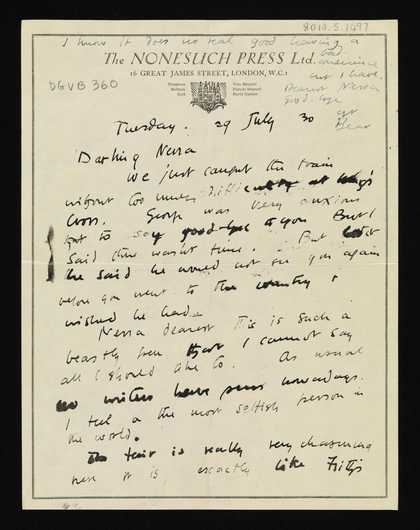 8010.5.1497
I know it does no real good having a
bad
conscience
but I have.
Dearest Nessa
good-bye
The NONESUCH PRESS Ltd.
16 GREAT JAMES STREET, LONDON, W.C.1
DGVB 360
Tuesday. 29 July 30
Darling Nessa
We just caught the train
without too much difficulty at King's
Cross. George was very anxious
not to say good-bye to you But I
said there wasn't time. But
he said he would not see you again
before you went to the country I
wished he had.
Nessa dearest this is such a
beastly pen that I cannot say
all I should like to. As usual
no writers have pens nowadays.
I feel the most selfish person in
the world.
The fair is really very charming
here it is exactly like Fritty's